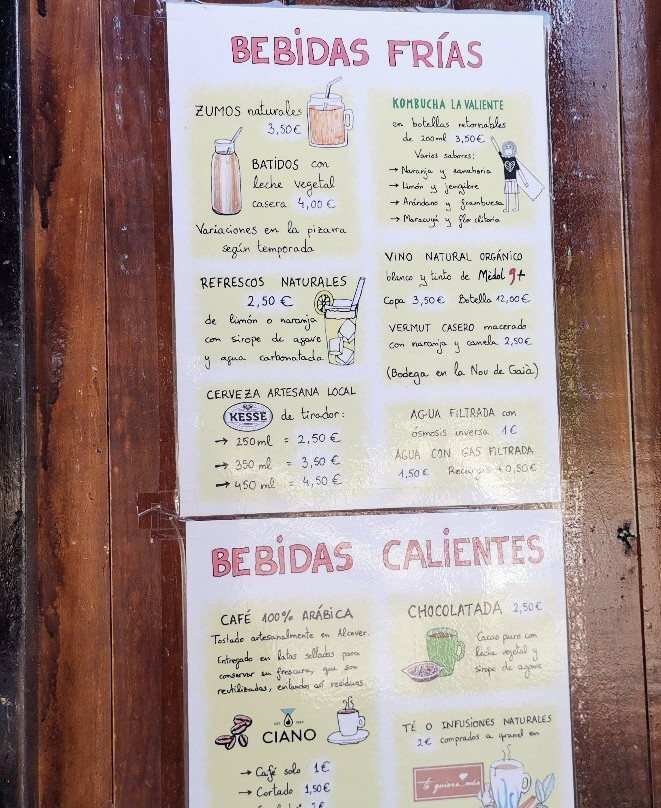 BEBIDAS FRÍAS
ZUMOS naturales
3,50€
BATIDOS con
leche vegetal
casera 4,00€
Variaciones en la pizarra
según temporada
REFRESCOS NATURALES
2,50 €
de limón o naranja
con sirope de agave
y agua carbonatada
CERVEZA ARTESANA LOCAL
KESSE de tirador:
→ 250 ml = 2,50 €
→ 350 ml = 3,50 €
→ 450 ml = 4,50 €
KOMBUCHA LA VALIENTE
en botellas retornables
de 200ml 3,50€
Varios sabores:
→ Naranja y zanahoria
→ Limón y jengibre
→ Arándano y frambuesa
→ Maracuyá y flor clitoria
VINO NATURAL ORGÁNICO
blanco y tinto de Medol 9+
Copa 3,50€ Botella 12,00€
VERMUT CASERO macerado
con naranja y canela 2,50€
(Bodega en la Nou de Gaià)
AGUA FILTRADA con
ósmosis inversa 1€
AGUA CON GAS FILTRADA
1,50€ Recargas +0,50€
BEBIDAS CALIENTES
CAFÉ 100% ARÁBICA
Tostado artesanalmente en Alcover.
Entregado en latas selladas para
conservar su frescura, que son
reutilizadas, evitando así residuos.
CIANO
→ Café solo 1€
→ Cortado 1,50€
CHOCOLATADA 2,50€
Cacao puro con
leche vegetal y
sirope de agave
TÉ O INFUSIONES NATURALES
2€ comprados a granel en
te quiero más